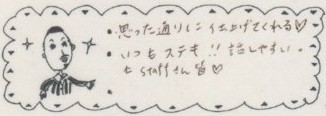 ・思った通りに仕上げてくれる♡
・いつもステキ!! 話しやすい。
・staffさん皆♡